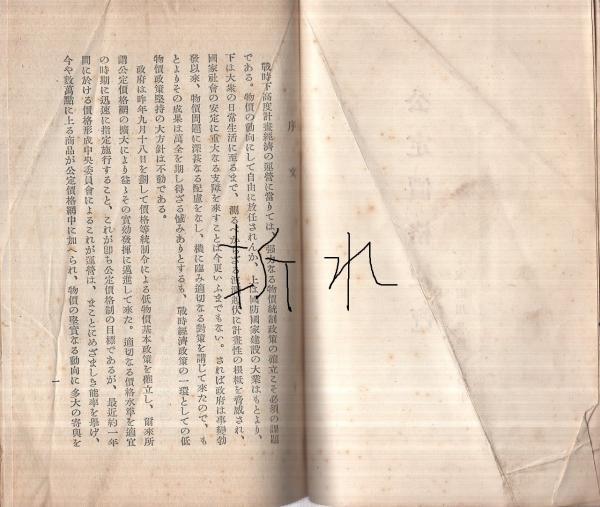 序文
戰時下高度計畫經濟の運營に當りては、强力なる物價統制政策の確立こそ必須の課題
である。物價の動向にして自由に放任されんか、上は國防國家建設の大業はもとより、
下は大衆の日常生活に至るまで、測るべからざる起伏に計畫性の根柢を脅威され、
國家社會の安定に重大なる支障を來すことは今更いふまでもない。されば政府は事變勃
發以來、物價問題に深甚なる配慮をなし、機に臨み適切なる對策を講じて來たので、も
とよりその成果は萬全を期し得ざる憾みありとするも、戰時經濟政策の一環としての低
物價政策堅持の大方針は不動である。
政府は昨年九月十八日を劃して價格等統制令による低物價基本政策を樹立し、爾來所
謂公定價格網の擴大により着々とその實効發揮に邁進して來た。適切なる價格水準を適宜
の時期に迅速に指定施行すること、これが卽ち公定價格制の目標であるが、最近約一年
間に於ける價格形成中央委員會によるこれが運營は、まことにめざましき能率を擧げ、
今や數萬點に上る商品が公定價格網中に加へられ、物價の堅實なる動向に多大の寄與を
折れ